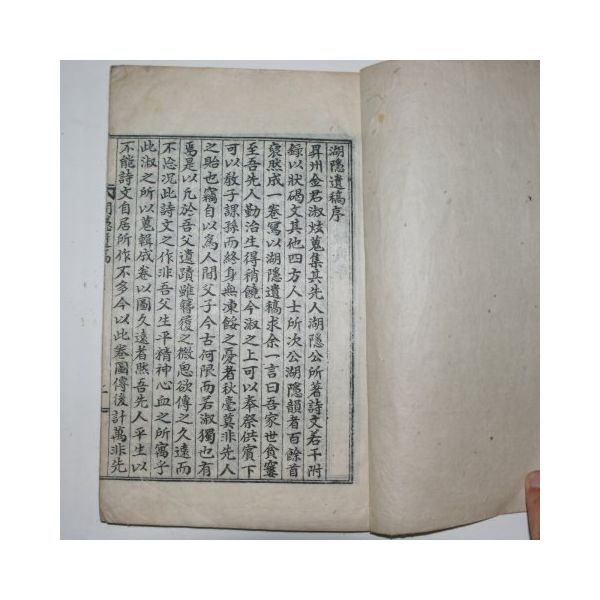 湖隱遺稿序
昇州金君淑炫蒐集其先人湖隱公所著詩文若干附
錄以狀碣文其他四方人士所次公湖隱韻者百餘首
裒然成一卷寫以湖隱遺稿求余一言曰吾家世貧窶
至吾先人勤治生得稍饒今淑之上可以奉祭供賓下
可以敎子課孫而終身無凍餒之憂者秋毫莫非先人
之貽也竊自以爲人間父子今古何限而若淑獨也有
焉是以凡於吾父遺蹟雖簪履之微思欲傳之久遠而
不忘況此詩文之作非吾父生平精神心血之所寓乎
此淑之所以蒐輯成卷以圖久遠者然吾先人平生以
不能詩文自居所作不多今以此卷圖傳後計萬非先
湖隱遺稿